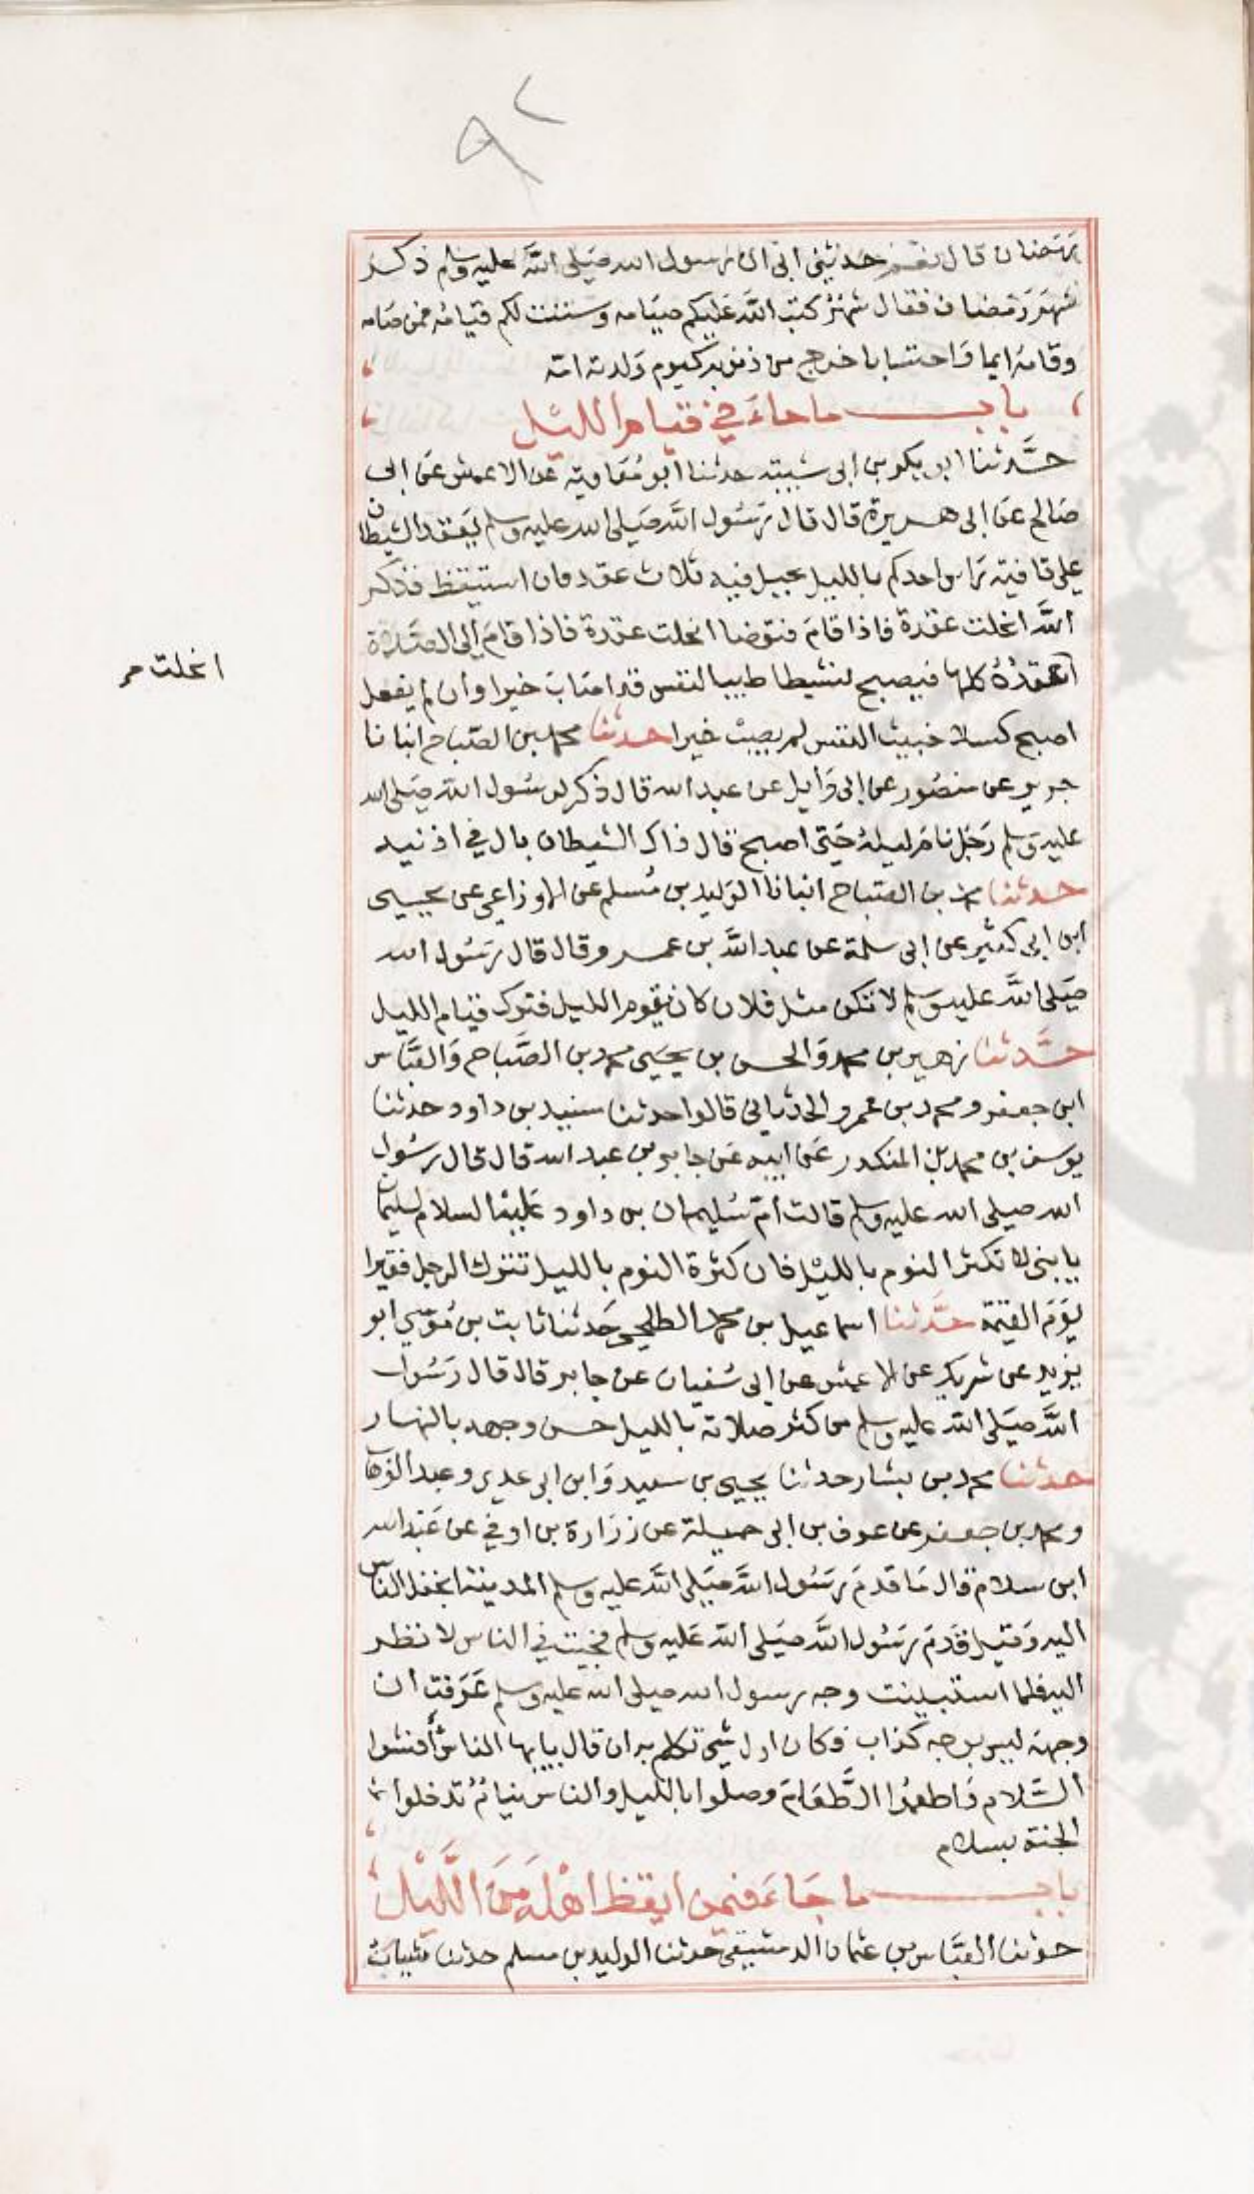 ٩٢
رمضان قال نعم حدثني ابي ان رسول الله صلى الله عليه وسلم ذكر
شهر رمضان فقال شهر كتب الله عليكم صيامه وسننت لكم قيامه فمن صامه
وقامه ايما واحتسابا خرج من ذنوبه كيوم ولدته امه
باب ما جاء في قيام الليل
حدثنا ابو بكر بن ابي شيبة حدثنا ابو معاوية عن الاعمش عن ابي
صالح عن ابي هريرة قال قال رسول الله صلى الله عليه وسلم يعقد الشيطان
على قافية راس احدكم بالليل بحبل فيه ثلاث عقد فان استيقظ فذكر
الله انحلت عقدة فاذا قام فتوضا انحلت عقدة فاذا قام الى الصلاة
انحلت مر
عقده كلها فيصبح نشيطا طيب النفس قد اصاب خيرا وان لم يفعل
اصبح كسلا خبيث النفس لم يصب خيرا حدثنا محمد بن الصباح انبانا
جرير عن منصور عن ابي وايل عن عبد الله قال ذكر لرسول الله صلى الله
عليه وسلم رجل نام ليلة حتى اصبح قال ذاك الشيطان بال في اذنيه
حدثنا محمد بن الصباح انبانا الوليد بن مسلم عن الاوزاعي عن يحيى
ابن ابي كثير عن ابي سلمة عن عبد الله بن عمرو قال قال رسول الله
صلى الله عليه وسلم لا تكن مثل فلان كان يقوم الليل فترك قيام الليل
حدثنا زهير بن محمد والحسن بن يحيى محمد بن الصباح والعباس
ابن جعفر ومحمد بن عمرو الحدثاني قالوا حدثنا سنيد بن داود حدثنا
يوسف بن محمد بن المنكدر عن ابيه عن جابر بن عبد الله قال قال رسول
الله صلى الله عليه وسلم قالت ام سليمان بن داود عليهما السلام لسليمان
يا بني لا تكثر النوم بالليل فان كثرة النوم بالليل تترك الرجل فقيرا
يوم القيمة حدثنا اسماعيل بن محمد الطلحي حدثنا ثابت بن موسى ابو
يزيد عن شريك عن الاعمش عن ابي سفيان عن جابر قال قال رسول
الله صلى الله عليه وسلم من كثر صلاته بالليل حسن وجهه بالنهار
حدثنا محمد بن بشار حدثنا يحيى بن سعيد وابن ابي عدي وعبد الوهاب
ومحمد بن جعفر عن عوف بن ابي جميلة عن زرارة بن اوفي عن عبد الله
ابن سلام قال ما قدم رسول الله صلى الله عليه وسلم المدينة انجفل الناس
اليه وقيل قدم رسول الله صلى الله عليه وسلم فجيت في الناس لا نظر
اليه فلما استبينت وجه رسول الله صلى الله عليه وسلم عرفت ان
وجهه ليس بوجه كذاب فكان اول شي تكلم به ان قال يايها الناس افشوا
السلام واطعموا الطعام وصلوا بالليل والناس نيام تدخلوا
الجنة بسلام
باب ما جاء فيمن ايقظ اهله من الليل
حدثنا العباس بن عثمان الدمشقي حدثنا الوليد بن مسلم حدثنا شيبان